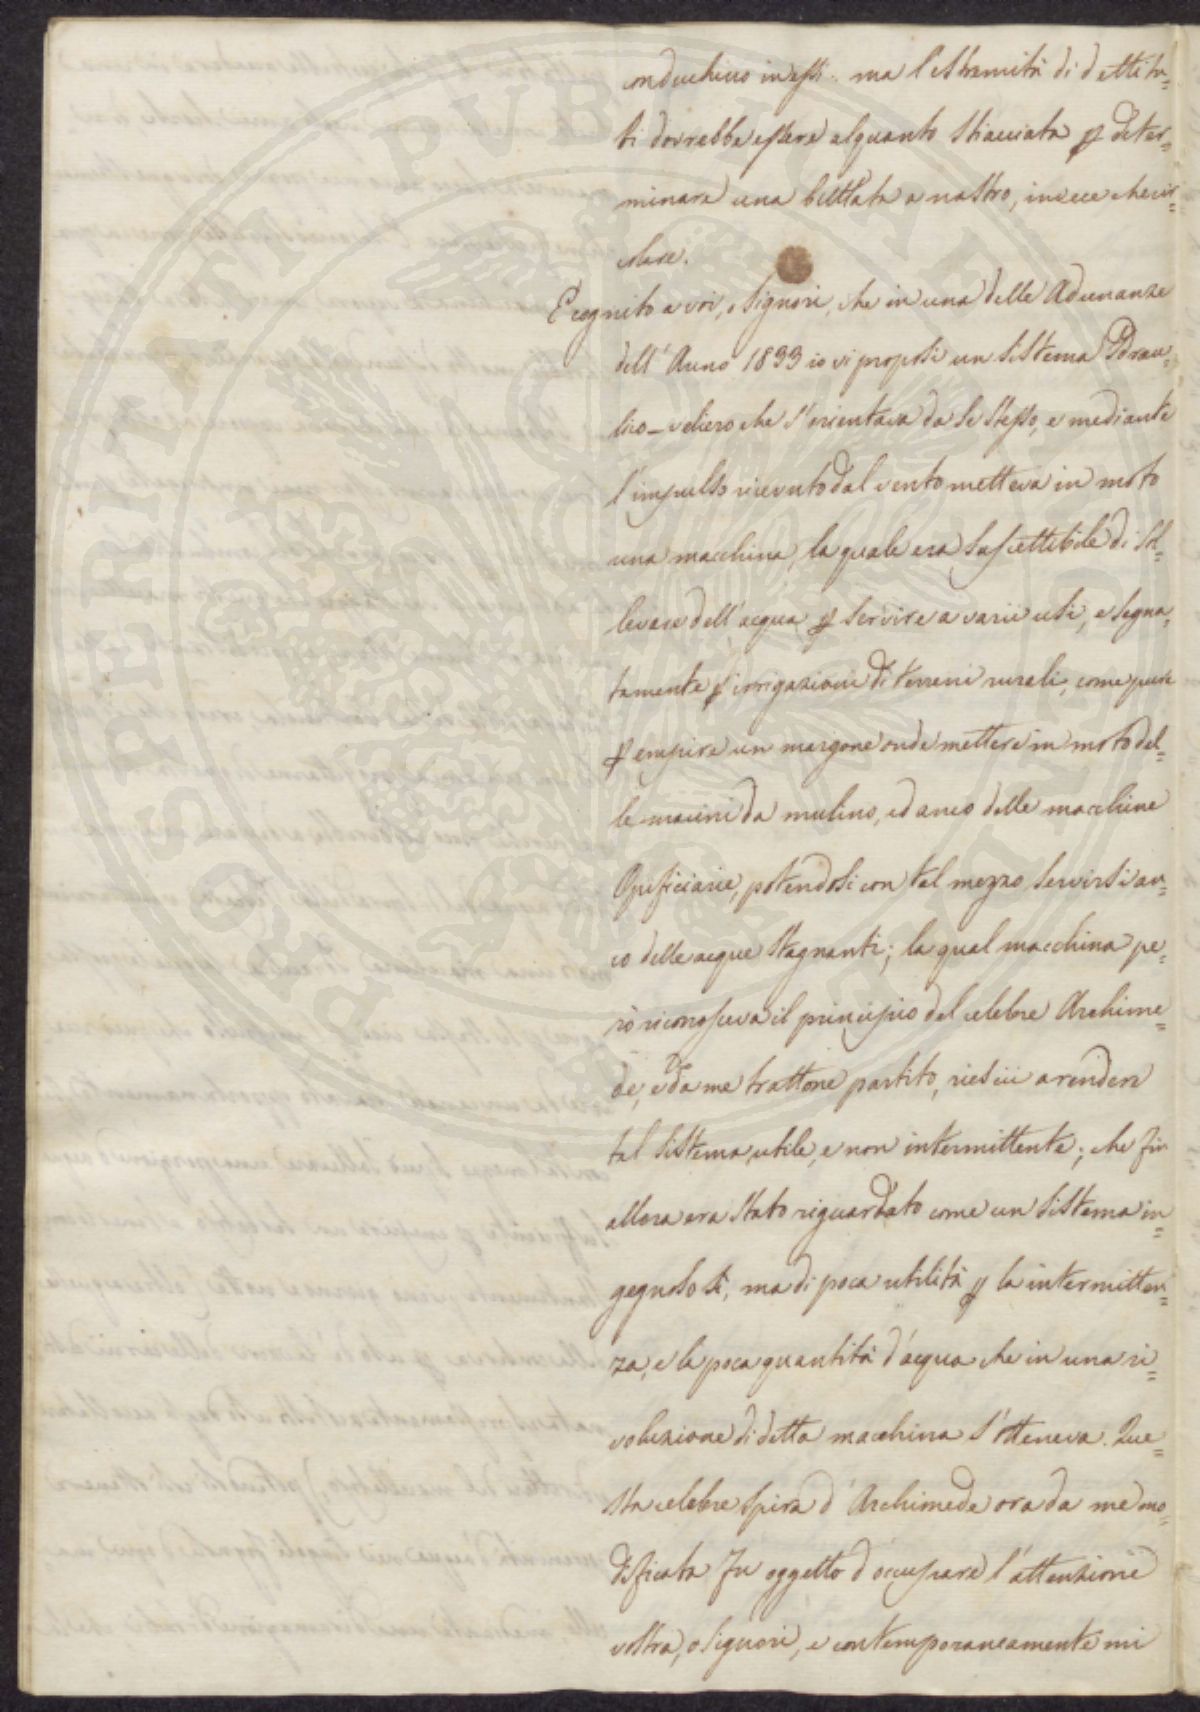 conduchino in essi: ma l'estremità di detti tu=
bi dovrebbe essere alquanto stiacciata p deter=
minare una buttata a nastro, invece che cir=
colare.
È cognito a voi, o Signori, che in una delle Adunanze
dell'Anno 1833 io vi proposi un sistema Idrau=
lico-veliero che s'orientava da se stesso, e mediante
l'impulso ricevuto dal vento metteva in moto
una macchina, la quale era suscettibile di sol=
levare dell'acqua p servire a varii usi, e segna=
tamente p irrigazioni di terreni rurali, come pure
p empire un margone onde mettere in moto del=
le macini da mulino, ed anco delle macchine
Opificiarie, potendosi con tal mezzo servirsi an=
co delle acque stagnanti; la qual macchina pe=
rò riconosceva il principio del celebre Archime=
de, e da me trattone partito, riescii a rendere
tal sistema utile, e non intermittente; che fin
allora era stato riguardato come un sistema in=
gegnoso sì, ma di poca utilità p la intermitten=
za, e la poca quantità d'acqua che in una ri=
voluzione di detta macchina s'otteneva. Que=
sta celebre spira d'Archimede ora da me mo=
dificata fu oggetto d'occupare l'attenzione
vostra, o Signori, e contemporaneamente mi
PROSPERITATI PUBLICAE